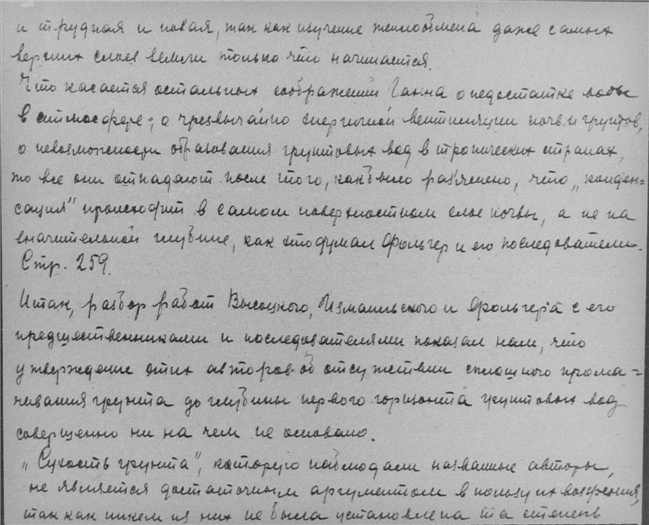 и трудная и новая, так как изучение теплообмена даже самых
верхних слоев земли только что начинается.
Что касается остальных соображений Ганна о недостатке воды
в атмосфере, о чрезвычайно энергичной вентиляции почв и грунтов,
о невозможности образования грунтовых вод в тропических странах,
то все они отпадают после того, как было разъяснено, что „конден-
сация" происходит в самом поверхностном слое почвы, а не на
значительной глубине, как это думал Фольгер и его последователи.
Стр. 259.
Итак, разбор работ Высоцкого, Измаильского и Фольгера с его
предшественниками и последователями показал нам, что
утверждение этих авторов об отсутствии сплошного прома-
чивания грунта до глубины первого горизонта грунтовых вод
совершенно ни на чем не основано.
„Сухость грунта", которую наблюдали названные авторы,
не является достаточным аргументом в пользу их воззрения,
так как никем из них не была установлена та степень